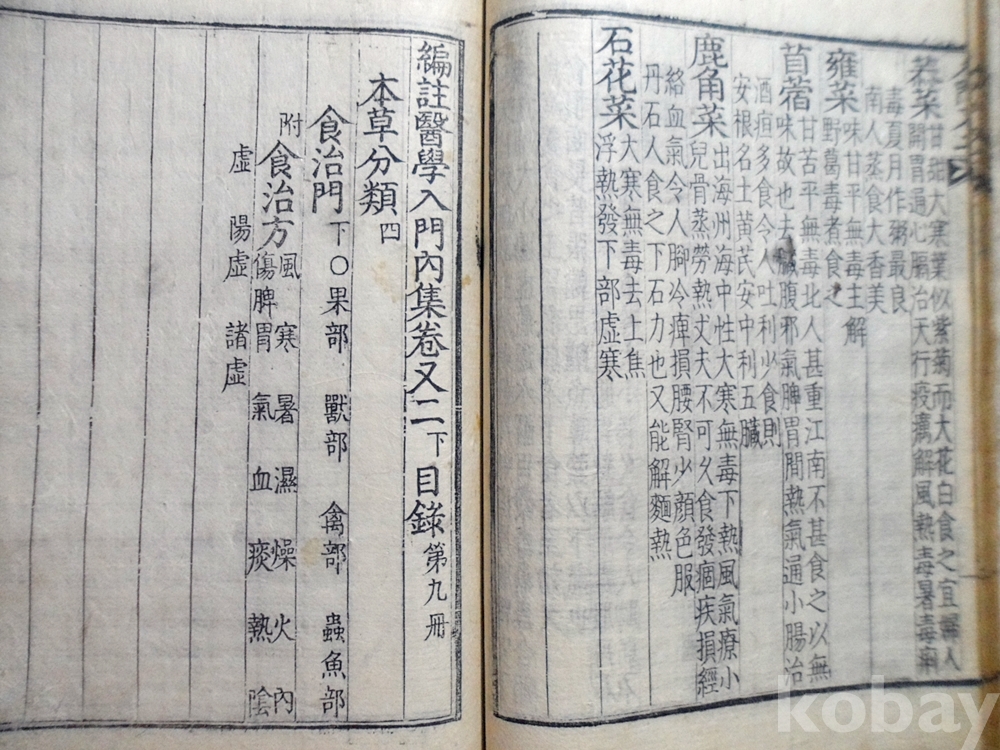 菜甘甜大寒葉似紫菊而大花白食之宜婦人
開胃通心膈治天行疫癘解風熱毒暑毒痢
毒夏月作粥最良
南人蒸食大香美
雍菜味甘平無毒主解
野葛毒煮食之
苜蓿甘苦平無毒北人甚重江南不甚食之以無
味故也去臟腹邪氣脾胃間熱氣通小腸治
酒疸多食令人吐利少食則
安根名土黃芪安中利五臟
鹿角菜出海州海中性大寒無毒下熱風氣療小
兒骨蒸勞熱丈夫不可久食發痼疾損經
絡血氣令人脚冷痺損腰腎少顔色服
丹石人食之下石力也又能解麵熱
石花菜大寒無毒去上焦
浮熱發下部虛寒
編註醫學入門內集卷又二下目錄第九冊
本草分類四
食治門下○果部 獸部 禽部 蟲魚部
附食治方風 寒 暑 濕 燥 火 內
傷脾胃 氣 血 痰 熱 陰
虛 陽虛 諸虛
kobay